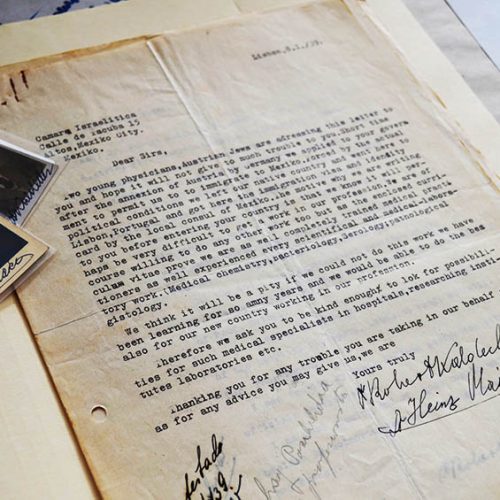 Lisbon, 8.1./39.
Camara Israelitica
Calle de Tacuba 15
Altos, Mexiko City.
Mexiko.
Dear Sirs,
two young physicians, Austrian Jews are adressing this letter to
you and hope it will not give to much trouble to you. Short time
after the annexion of Austria by Germany we applied to your governe
ment to permit us to immigrate to Mexico, forced by the actual
political conditions we left our native country and went here to
Lisbon, Portugal and got here the immigration visa and identity
card by the local consul of Mexiko. The motive why we are writing
to you before entering your country is that we know it will per-
haps be very difficult to get work in our profession. We are of
course willing to do any other work too but as the enclosed curri-
culum vitas prove we are as well completely trained medical practi
tioners as well experienced very scientific and medical labora-
tory work. (Medical chemistry, bacteriology, Serology, pathologic
gistology.
We think it will be a pity if we could not do this work we have
been learning for so amny years and we would be able to do the bes
also for our new country working in our profession.
Therefore we ask you to be kind enough to lok for possibili.
ties for such medical specialists in hospitals, researching insti-
tutes laboratories etc.
Thanking you for any trouble you are taking in our behalf
as for any advice you may give us, we are
Yours truly
Heinz